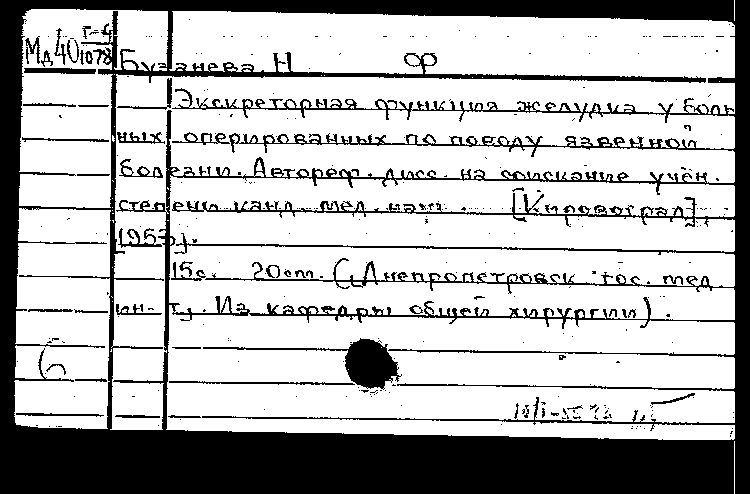 Мд 40 Г-4
1078
Бузанева, Н Ф
Экскреторная функция желудка у боль
ных, оперированных по поводу язвенной
болезни. Автореф. дисс. на соискание учен.
степени канд. мед. наук. [Кировоград],
[1953].
15с. 20см. (Днепропетровск гос. мед.
ин-т. Из кафедры общей хирургии).
6